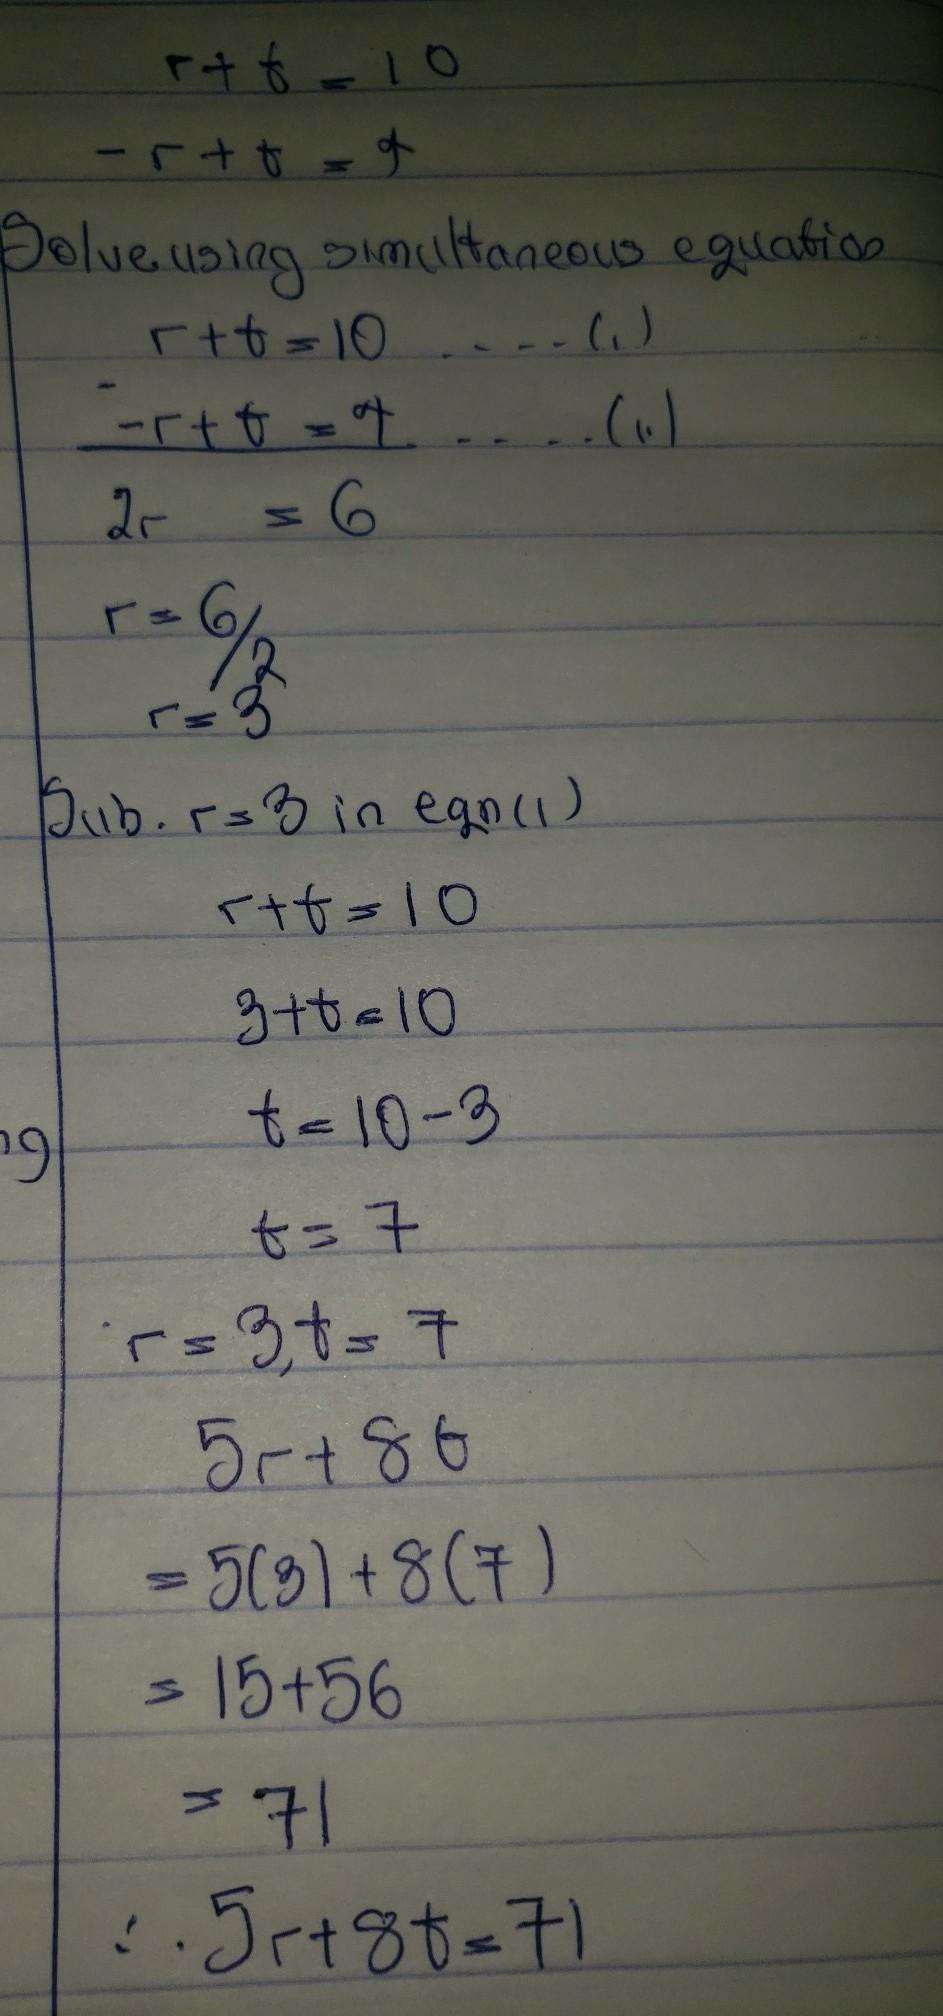 r+t=10
-r+t=4
Solve using simultaneous equation
r+t=10 .....(i)
-
-r+t=4 .....(ii)
2r =6
r=6/2
r=3
Sub. r=3 in eqn(1)
r+t=10
3+t=10
t=10-3
t=7
r=3,t=7
5r+8t
=5(3)+8(7)
=15+56
=71
∴ 5r+8t=71